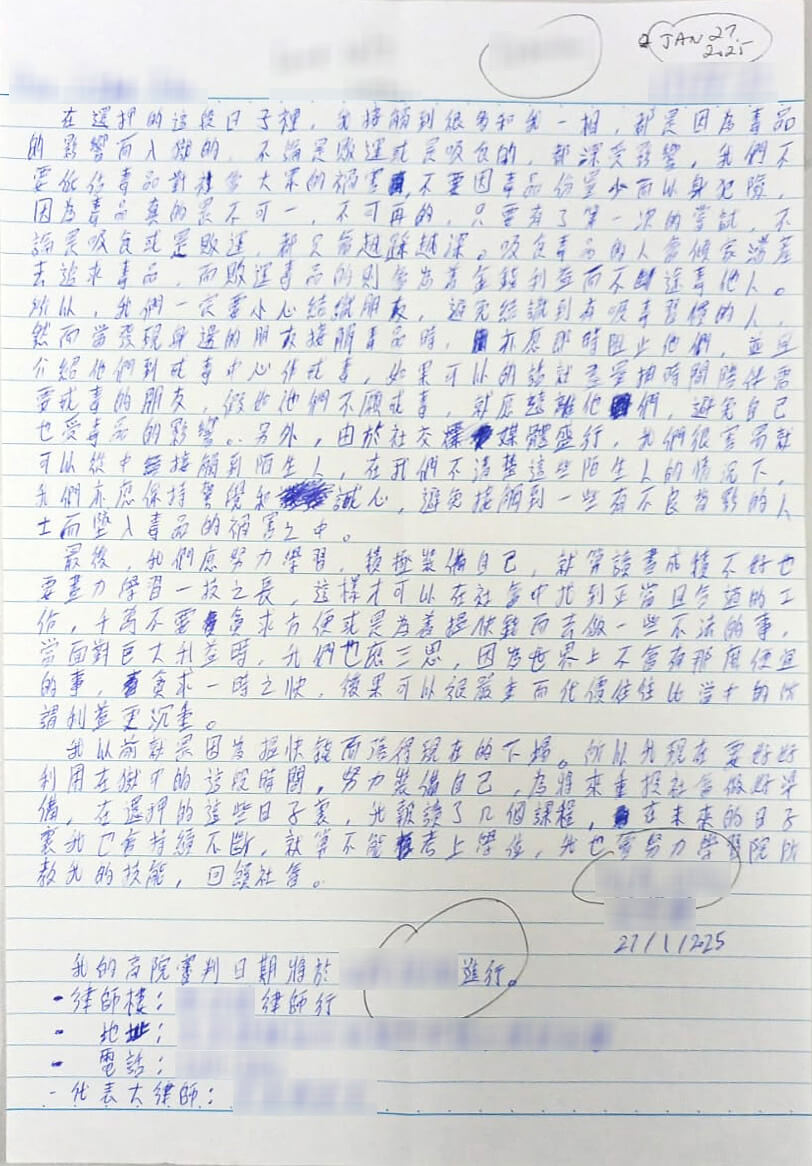 JAN 27
2025
在還押的這段日子裡，我接觸到很多和我一相，都是因為毒品
的影響而入獄的，不論是販運或是吸食的，都深受影響，我們不
要低估毒品對社會大眾的禍害，不要因毒品份量少而以身犯險，
因為毒品真的是不可一，不可再的，只要有了第一次的嘗試，不
論是吸食或是販運，都只會越踩越深。吸食毒品的人會傾家蕩產
去追求毒品，而販運毒品的則會為著金錢利益而不斷荼毒他人。
所以，我們一定要小心結織朋友，避免結識到有吸毒習慣的人，
然而當發現身邊的朋友接觸毒品時，亦應即時阻止他們，並且
介紹他們到戒毒中心作戒毒，如果可以的話就盡量抽時間陪伴需
要戒毒的朋友，假如他們不願戒毒，就應遠離他們，避免自己
也受毒品的影響。另外，由於社交媒體盛行，我們很容易就
可以從中接觸到陌生人，在我們不清楚這些陌生人的情況下，
我們亦應保持警覺和誠心，避免接觸到一些有不良習慣的人
士而墮入毒品的禍害之中。
最後，我們應努力學習，積極裝備自己，就算讀書成積不好也
要盡力學習一技之長，這樣才可以在社會中找到正當且合適的工
作，千萬不要貪求方便或是為着搵快錢而去做一些不法的事，
當面對巨大利益時，我們也應三思，因為世界上不會有那麼便宜
的事，貪求一時之快，後果可以很嚴重而代價往往比當中的所
謂利益更沉重。
我以前就是因為搵快錢而落得現在的下場。所以我現在要好好
利用在獄中的這段時間，努力裝備自己，為將來重投社會做好準
備，在還押的這些日子裏，我報讀了几個課程，在未來的日子
裏我也會持續不斷，就算不能考上學位，我也會努力學習院所
教我的技能，回饋社會。
27/1/2025
我的高院審判日期將於 進行。
-律師樓： 律師行
- 地址：
- 電話：
-代表大律師：